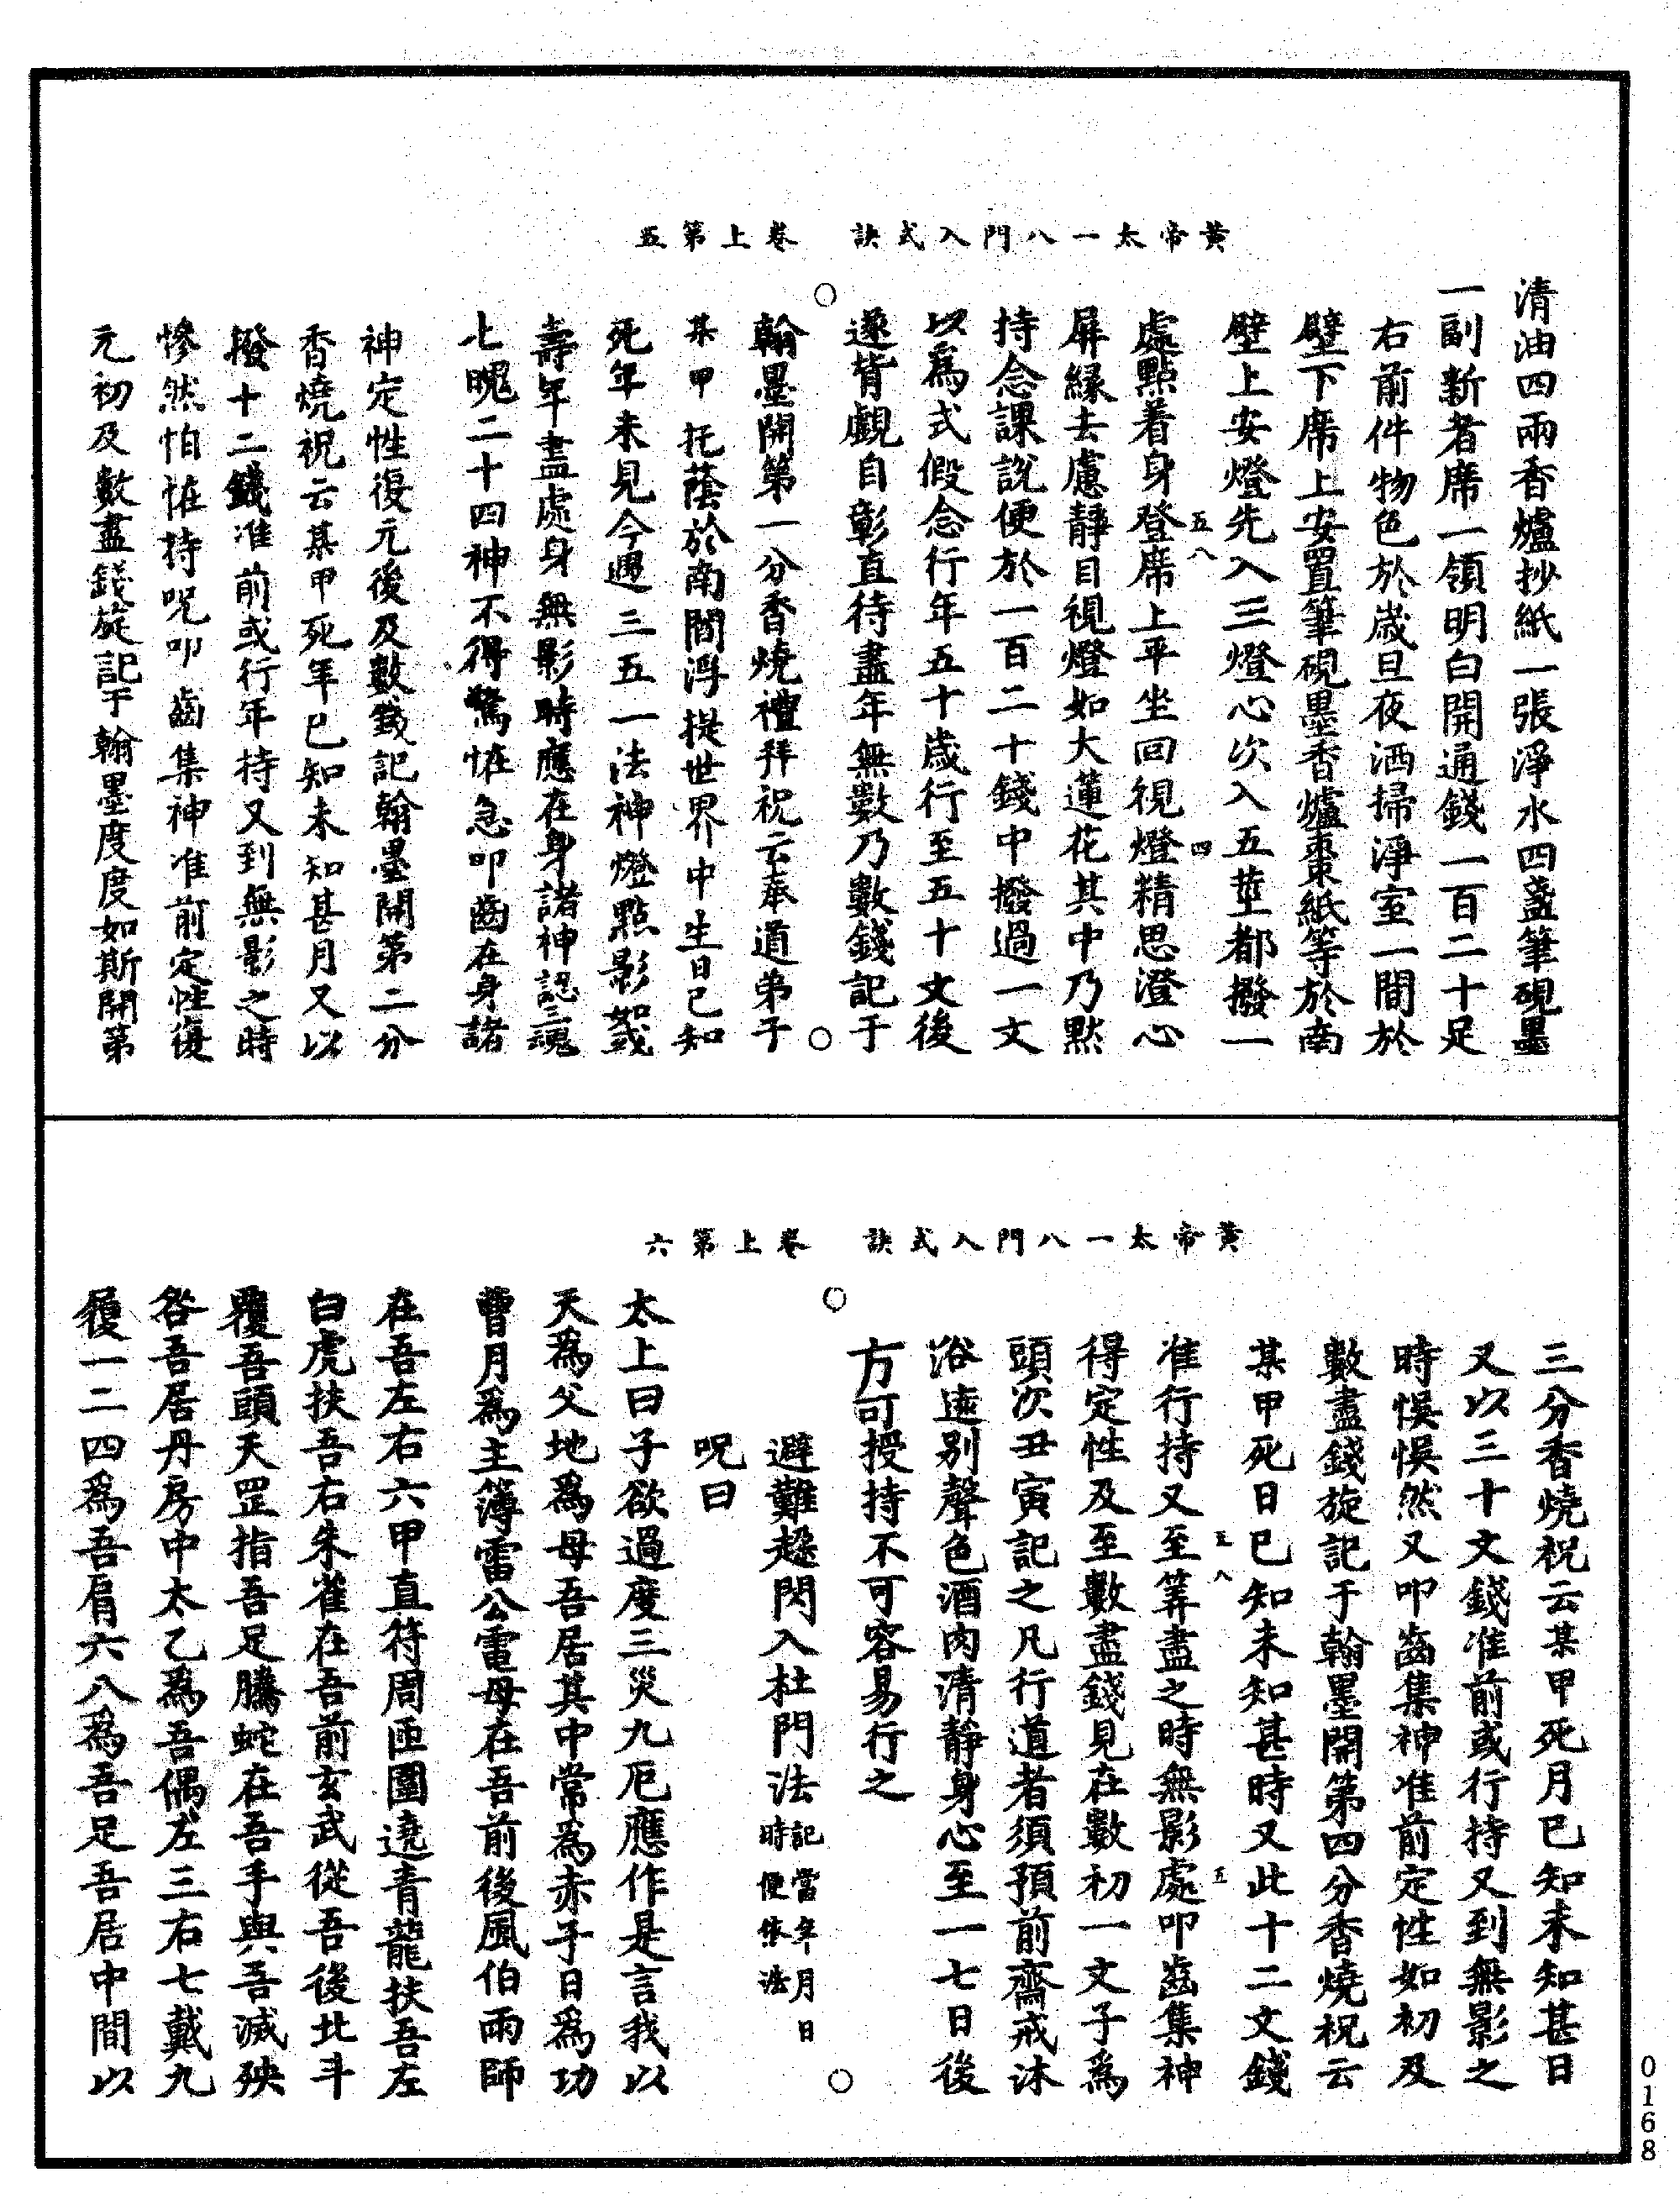 黃帝太一八門入式訣　卷上第五
清油四兩香爐抄紙一張淨水四盞筆硯墨
一副新者席一領明白開通錢一百二十足
右前件物色於歲旦夜洒掃淨室一間於
壁下席上安置筆硯墨香爐棗棗紙等於南
壁上安燈先入三燈心次入五莖都撥一
五八　四
處點着身登席上平坐回視燈精思澄心
屏緣去慮靜目視燈如大蓮花其中乃黙
持念課說便於一百二十錢中撥過一文
以爲式假念行年五十歲行至五十文後
遂皆覷自彰直待盡年無數乃數錢記于
翰墨開第一分香燒禮拜祝云奉道弟子
某甲托蔭於南閻浮提世界中生日已知
死年未見今遇三五一法神燈點影然或
壽年盡處身無影時應在身諸神認三魂
七魄二十四神不得驚恠急叩齒在身諸
神定性復元後及數錢記翰墨開第二分
香燒祝云某甲死年已知未知甚月又以
撥十二錢准前或行年持又到無影之時
慘然怕恠持呪叩齒集神准前定性復
元初及數盡錢旋記于翰墨度度如斯開第
黃帝太一八門入式訣　卷上第六
三分香燒祝云某甲死月已知未知甚日
又以三十文錢准前或行持又到無影之
時悞悞然又叩齒集神准前定性如初及
數盡錢旋記于翰墨開第四分香燒祝云
某甲死日已知未知甚時又此十二文錢
五八　五
准行持又至筭盡之時無影處叩齒集神
得定性及至數盡錢見在數初一文子爲
頭次丑寅記之凡行道者須預前齋戒沐
浴遠別聲色酒肉清靜身心至一七日後
方可授持不可容易行之
避難趍閃入杜門法記當年月日時便依法
呪曰
太上曰子欲過度三災九厄應作是言我以
天爲父地爲母吾居其中常爲赤子日爲功
曹月爲主簿雷公電母在吾前後風伯雨師
在吾左右六甲直符周匝圍遶青龍扶吾左
白虎扶吾右朱雀在吾前玄武從吾後北斗
覆吾頭天罡指吾足騰蛇在吾手與吾滅殃
咎吾居丹房中太乙爲吾偶左三右七戴九
履一二四爲吾肩六八爲吾足吾居中間以
0168